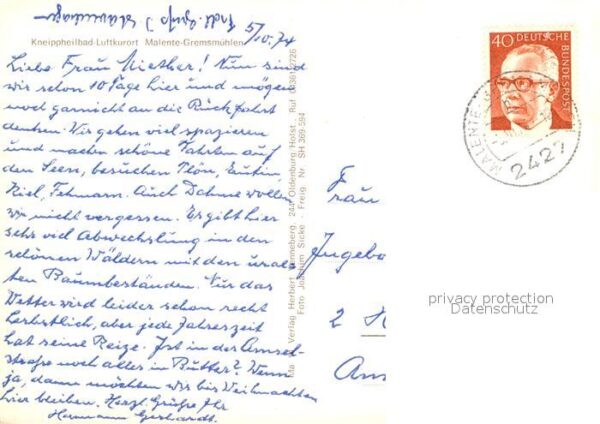 Kneippheilbad-Luftkurort Malente-Gremsmühlen
5/10.74
Liebe Frau Miether! Nun sind
wir schon 10 Tage hier und mögen
noch garnicht an die Rückfahrt
denken. Wir gehen viel spazieren
und machen schöne Fahrten auf
den Seen, besuchen Plön, Eutin,
Kiel, Fehmarn. Auch Dahme wollen
wir nicht vergessen. Es gibt hier
sehr viel Abwechslung in den
schönen Wäldern mit den ural-
ten Baumbeständen. Nur das
Wetter wird leider schon recht
herbstlich, aber jede Jahreszeit
hat seine Reize. Ist in der Amsel-
straße noch alles in Butter? Wenn
ja, dann möchten wir bis Weihnachten
hier bleiben. Herzl. Grüße Ihr
Hermann Gerhardt.
Verlag Herbert Henneberg, 244 Oldenburg Holst Ruf 04361/2726
Foto Joachim Sicke - Freig. Nr. SH 369-594
40 DEUTSCHE BUNDESPOST
MALENTE
2427
Frau
Ingebo
2
privacy protection
Datenschutz